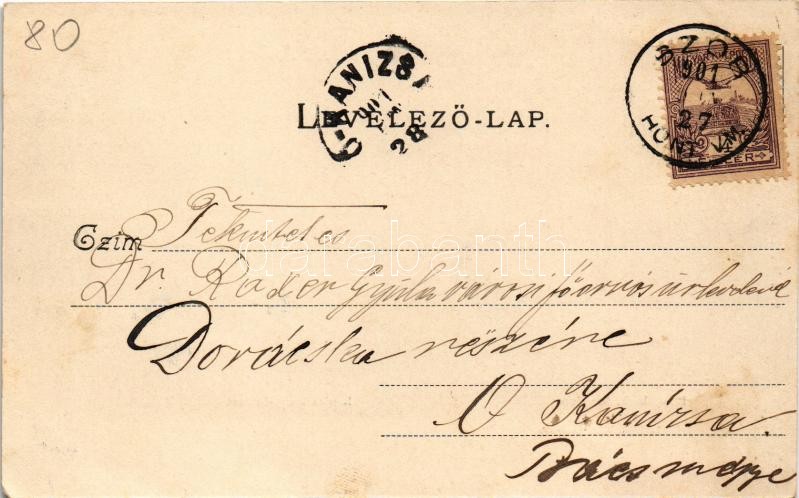 80
SZOB
901
27
HONT VM.
Ó-KANIZSA
901
28
LEVELEZŐ-LAP.
Czim Tekintetes
Dr. Rader Gyula városi főorvos úr
Dorácska részére
Ó Kanizsa.
Bácsmegye
darabanth